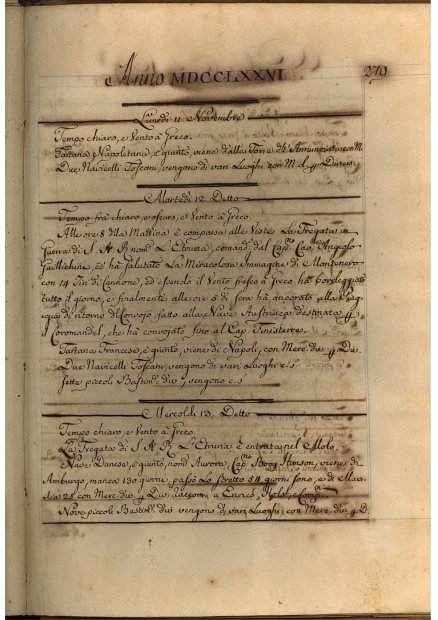 Anno MDCCLXXVI
279
Lunedi 11 Novembre
Tempo chiaro, e Vento à Greco.
Tartana Napoletana, è giunto, viene d'alla Torre dell' Annunziata con M.
Due Navicelli Toscani, vengono di vari Luoghi con M. d. p. Diversi
Martedi 12 Detto
Tempo frà chiaro, e oscuro, e Vento à Greco.
Alle ore 8 della Mattina è comparsa alle Viste La Fregata in
Guerra di S. A. R. nom.ª L'Etruria, comand.ª dal Cap.no Cav.re Angolo
ed hà salutato La Miracolosa Immagine di Montenero
con 14 Tiri di Cannone, ed essendo il Vento fresco à Greco hà bordeggiato
tutto il giorno, e finalmente alle ore di sera hà ancorato alla
di ritorno del Convojo fatto alla Nave Austriaca destinata p.
il Coromandel, che hà convojato fino al Cap. Finisterre.
Tartana Francese, è giunto, viene di Napoli, con Merc. div. p. Div.
Due Navicelli Toscani, vengono di vari Luoghi c. s.
Sette piccoli Bastim. div. vengono c. s.
Mercoldi 13 Detto
Tempo chiaro, e Vento à Greco.
La Fregata di S. A. R. L'Etruria è entrata nel Molo.
Nave Danese, è giunto, nom.ª Aurora, Cap.no Hanson, viene di
Amburgo, manca 130 giorni, passò Lo Stretto giorni sono, e di
28 con Merc. div. p. Div. à Enrico,
Nove piccoli Bastim. div. vengono di vari Luoghi con Merc. div. p. D.